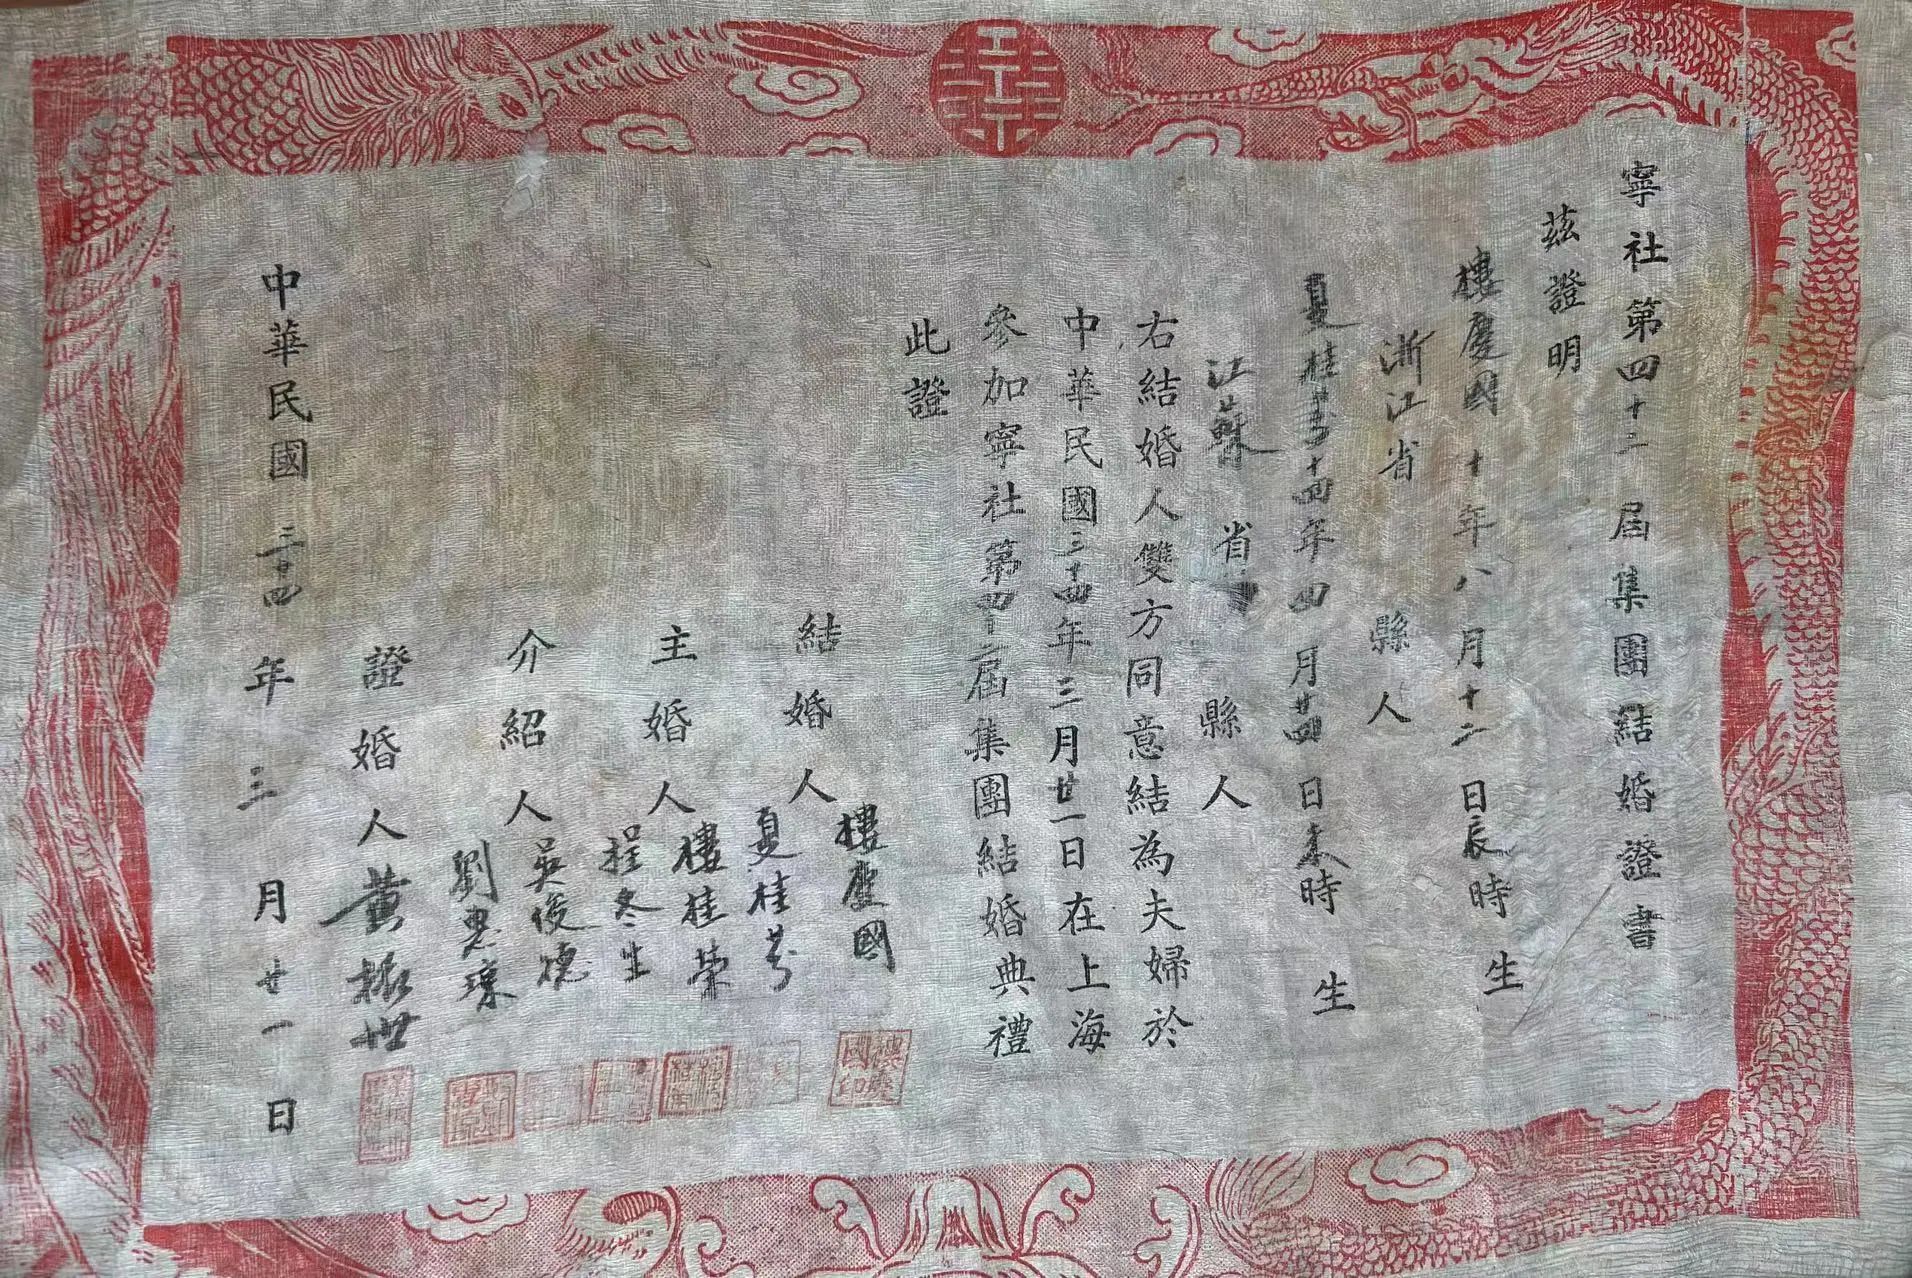 寧社第四十二屆集團結婚證書
茲證明
樓慶國 十年八月十二日辰時生
浙江省 縣人
夏桂芬 十四年四月廿四日未時生
江蘇省 縣人
右結婚人雙方同意結為夫婦於
中華民國三十四年三月廿一日在上海
參加寧社第四十二屆集團結婚典禮
此證
結婚人 樓慶國
夏桂芬
主婚人 樓桂榮
程冬生
介紹人 吳俊德
劉惠
證婚人 黃振世
中華民國三十四年三月廿一日
樓慶國印